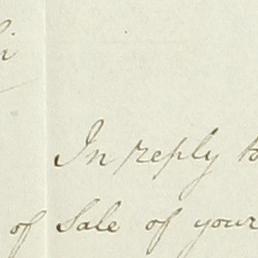 In reply to
of Sale of your